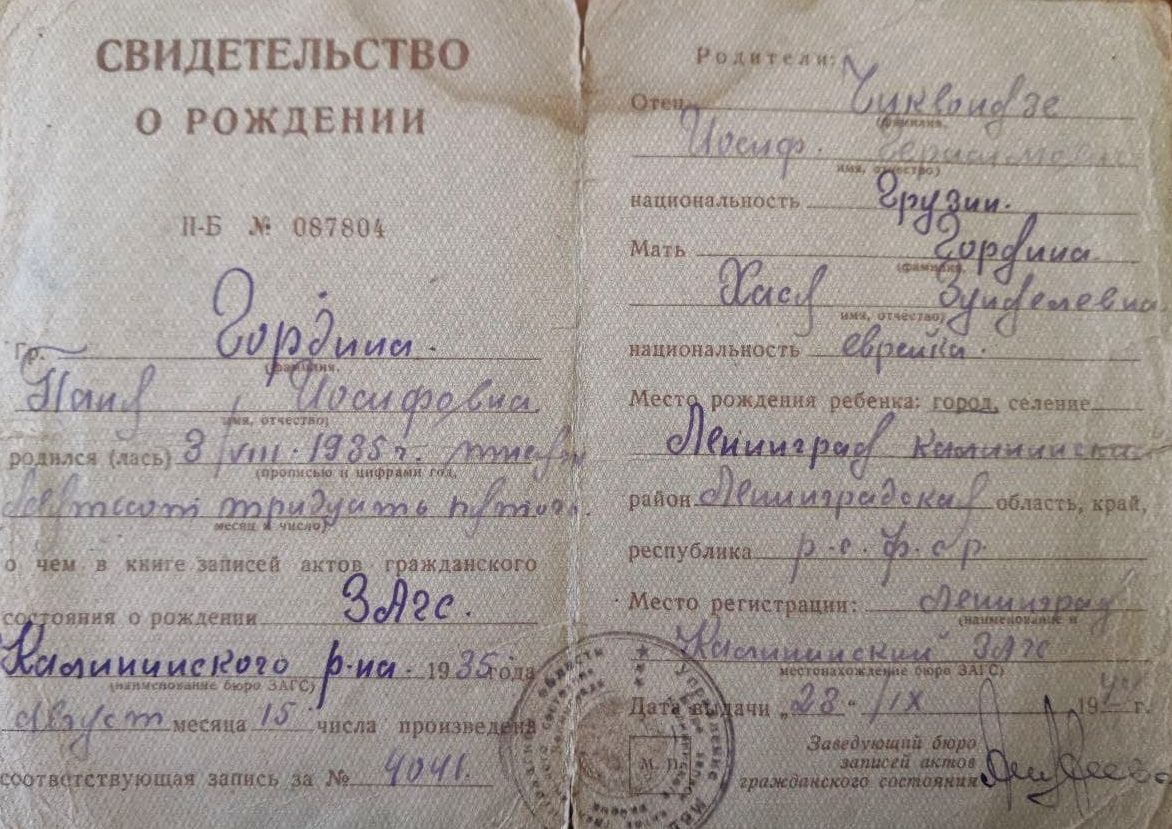 СВИДЕТЕЛЬСТВО
О РОЖДЕНИИ
II-Б № 087804
Гр. Гордина
(фамилия,
Иосифовна
имя, отчество)
родился (лась) 3/VIII-1935 г. тысяча
(прописью и цифрами год,
девятьсот тридцать пятого.
месяц и число)
о чем в книге записей актов гражданского
состояния о рождении ЗАГС.
Калининского р-на. 1935 года
(наименование бюро ЗАГС)
Август месяца 15 числа произведена
соответствующая запись за № 4041.
Родители:
Отец
(фамилия,
Иосиф
имя, отчество)
национальность Грузин.
Мать Гордина
(фамилия,
Хася Зунделевна
имя, отчество)
национальность еврейка.
Место рождения ребенка: город, селение
Ленинград Калининский
район Ленинградская область, край,
республика р.с.ф.ср.
Место регистрации: Ленинград
(наименование и
Калининский ЗАГС
местонахождение бюро ЗАГС)
Дата выдачи „28" /IX 19 г.
М. П.
Заведующий бюро
записей актов
гражданского состояния